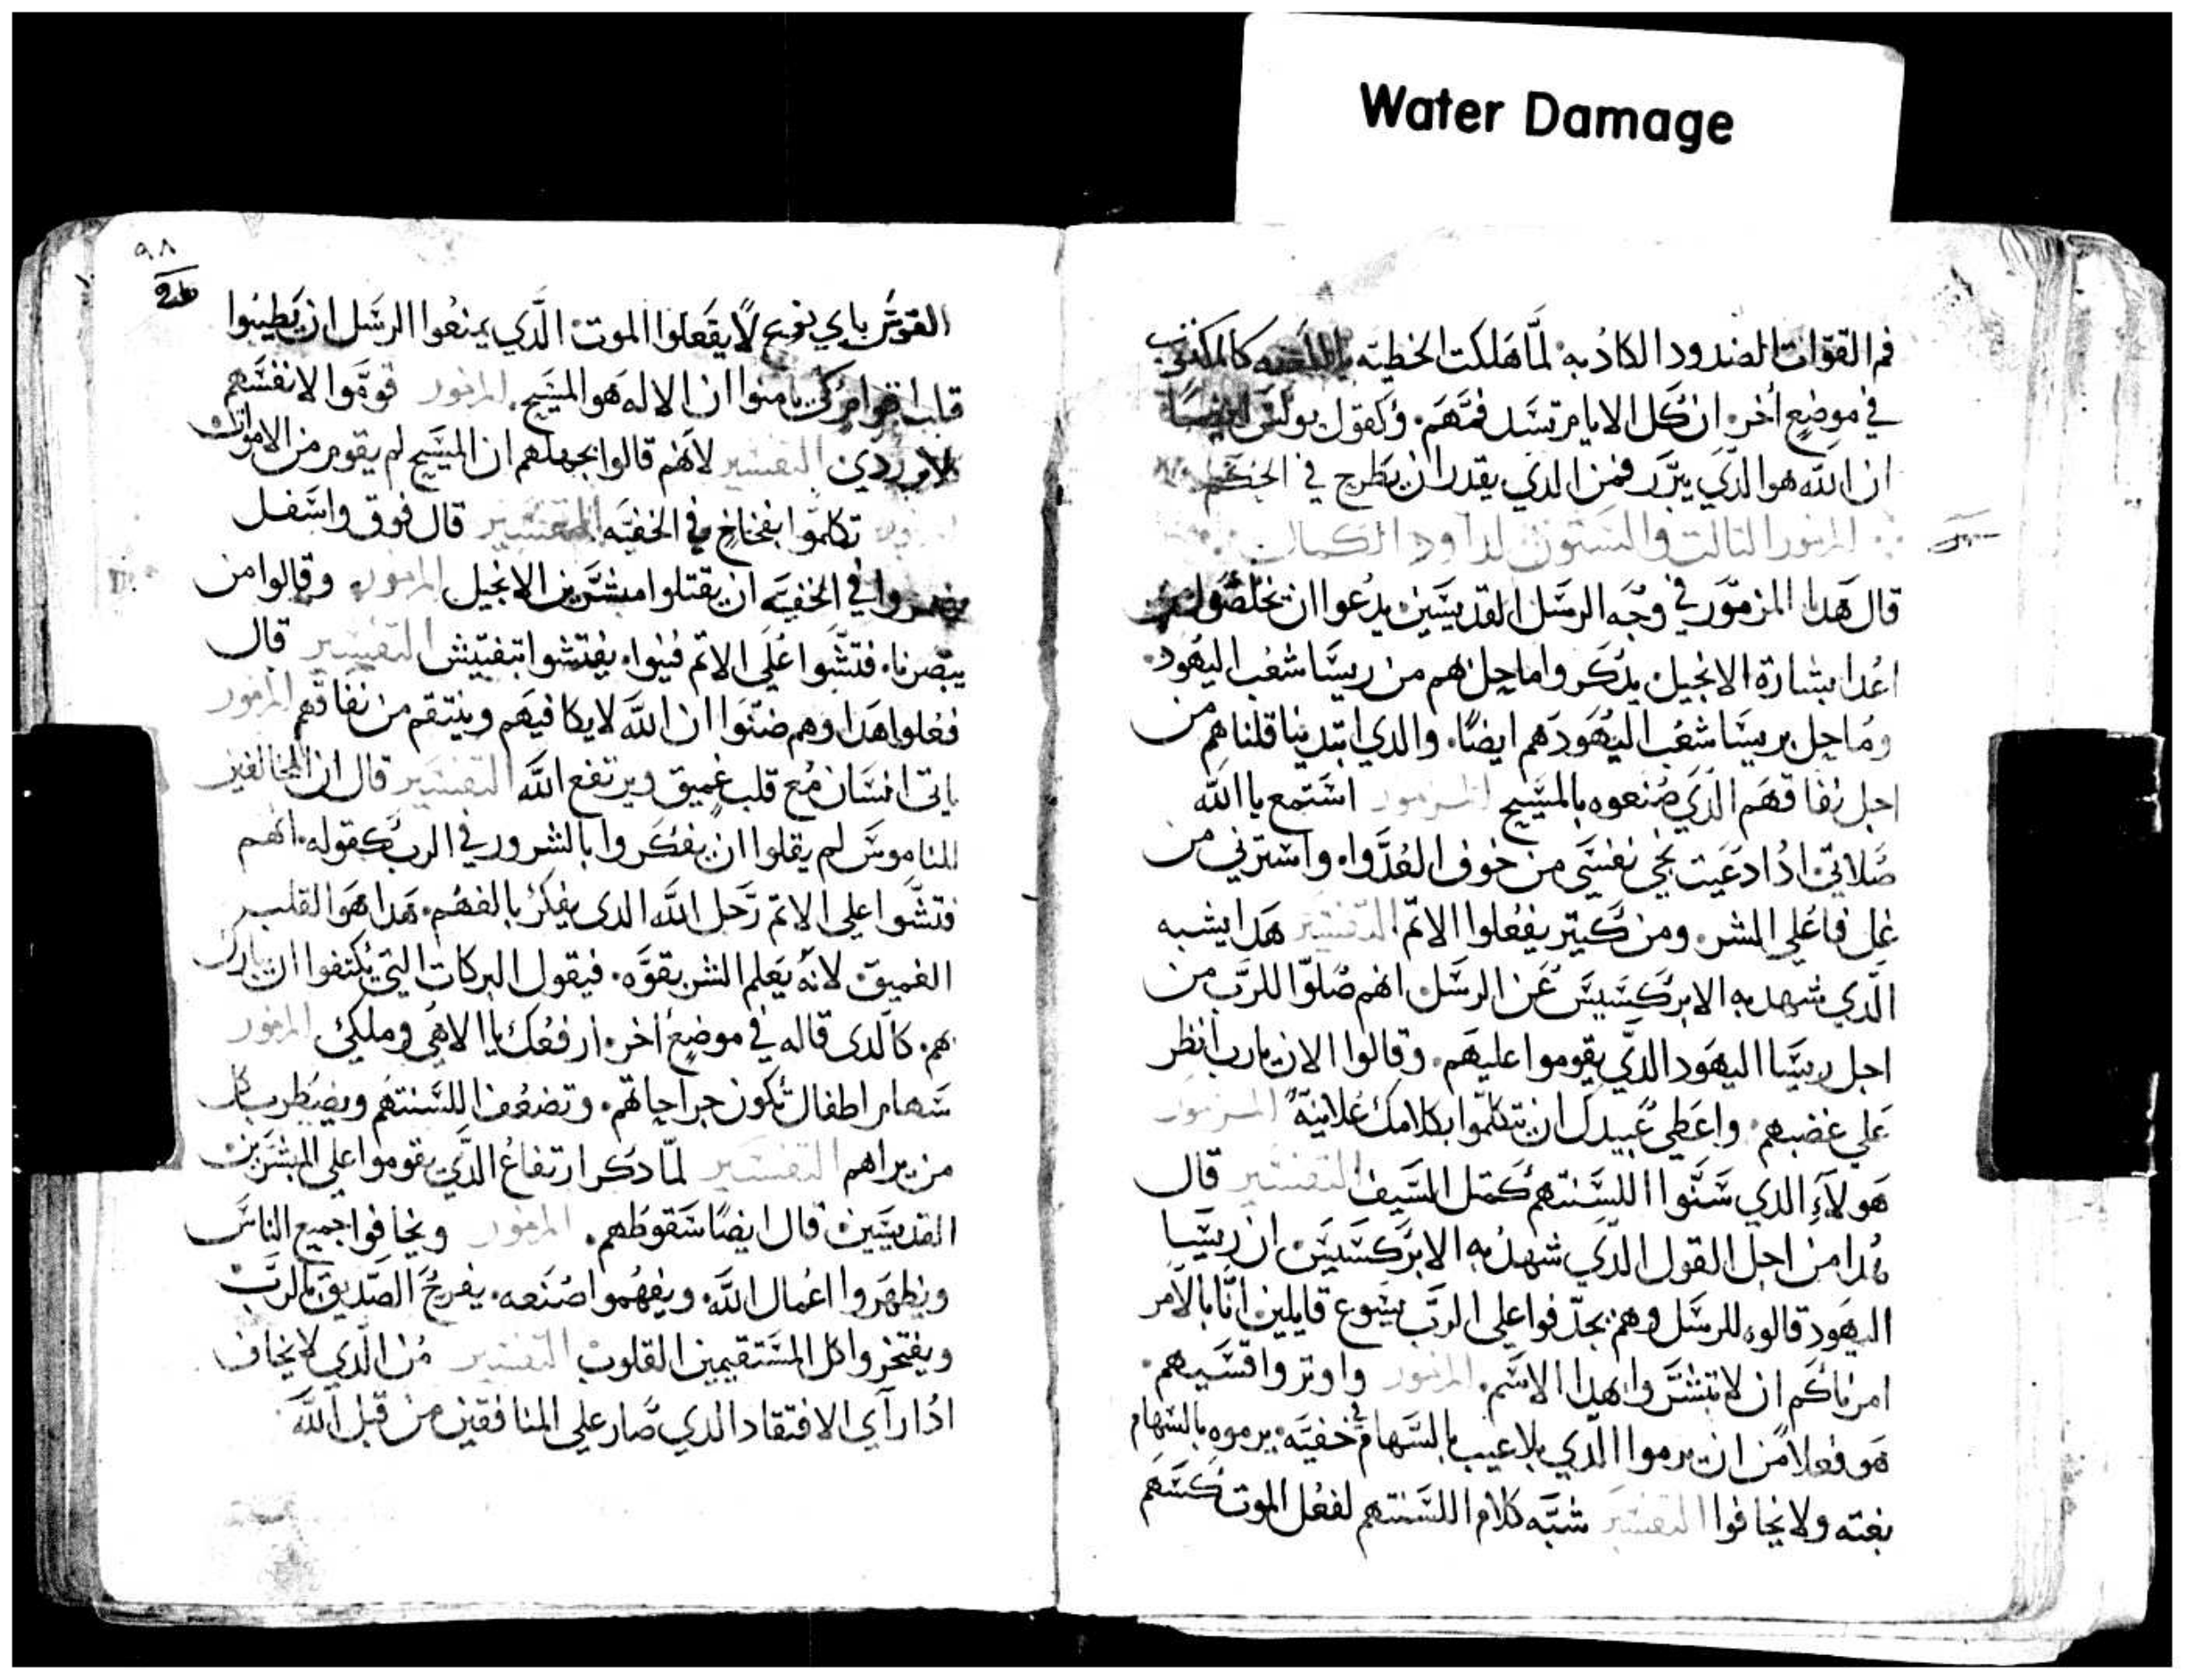 Water Damage
فم القوّات الضدود الكادبه لمّا هلكت الخطيّه كالمكتوب
في موضعٍ أخر ان كل الايام تسد فمّهم وكقول بولس ايضًا
ان الله هو الدّي يبّرر فمن الدي يقدر ان يطرح في الحكم
المزمور التالت والستون لداود الكمال
قال هدا المزموّر في وجّه الرسل القديسّين يدعوا ان يخلصوا من
اعدا بشارة الانجيل يدكروا ما حل بهم من ريسّا شعب اليهود
وما حل بريسّا شعب اليهود هم ايضًا والدي ابتدينا قلناهم من
اجل نفاقهم الدي صنعوه بالمسّيح المزمور استمع يا الله
صلاتي ادا دعيت نجي نفسّي من خوف العدّواه واسترني من
غل فاعلي الشر ومن كيتر يفعلوا الاتم التفسير هدا يشبه
الدّي شهد به الابركسّيسّ عن الرسّل انهم صلوّا للرّب من
اجل ريسّا اليهود الدّي يقوموا عليهم وقالوا الان يارب انظر
على غضبهم واعطي عبيدك ان يتكلمّوا بكلامك علانيّة المزمور
هولاءِ الدي سّنّوا اللسّنتهم كمتل السّيف التفسير قال
هدا من اجل القول الدّي شهد به الابركسّيسّ ان ريسّا
اليهود قالوه للرسّل وهم يجدّفوا على الرّب يسّوع قايلين انّا بالامر
امرناكم ان لا تبشّروا بهدا الاسّم المزمور واوتروا قسّيهم
هو فعلا من ان يرموا الّدي بلا عيب بالسّهام في خفيّه يرموه بالسّهام
بغته ولا يخافوا التفسير شبّه كلام اللسّنتهم لفعل الموت كسّهم
٩٨
القوسّ باي نوع لا يفعلوا الموت الّدي يمنعوا الرسّل ان يطيبوا
قلب يامنوا ان الاله هو المسّيح المزمور قومّوا لانفسّهم
كلام ردي التفسير لانهم قالوا بجهلهم ان المسّيح لم يقوم من الاموات
تكلموّا بفخاخ في الخفيّه التفسير قال فوق واسّفل
في الخفيّه ان يقتلوا مبشّرين الانجيل المزمور وقالوا من
يبّصرنا فتشّوا على الاتم فنيوا يفتشوا بتفتيش التفسير قال
فعلوا هدا وهم ضنّوا ان الله لا يكافيهم وينتقم من نفاقهم المزمور
ياتي انسّان مع قلب غميق ويرتفع الله التفسّير قال ان المخالفين
للناموسّ لم يقلوا ان يفكروا بالشرور في الرب كقوله انهم
فتشّوا على الاتم رّجل الله الدي يفكر بالفهم هدا هو القلب
الغميق لانّه يعلم الشر بقوّه فيقول البركات التي يكتفوا ان يبارك
بهم كالّدي قاله في موضع أخر ارفعك يا الاهي وملكي المزمور
سّهام اطفال تكون جراحاتهم وتضعف اللسّنتهم ويضّطرب كل
من يراهم التفسّير لمّا دكر ارتفاع الدّي يقوموا على المبشّرين
القديسّين قال ايضًا سّقوطهم المزمور ويخافوا جميع الناسّ
ويظهروا اعمال الله ويفهموا صنعه يفرح الصّديق بالرّب
ويفتخروا كل المسّتقيمين القلوب التفسير من الّدي لا يخاف
ادا رآي الافتقاد الدي صّار علي المنافقين من قبل الله